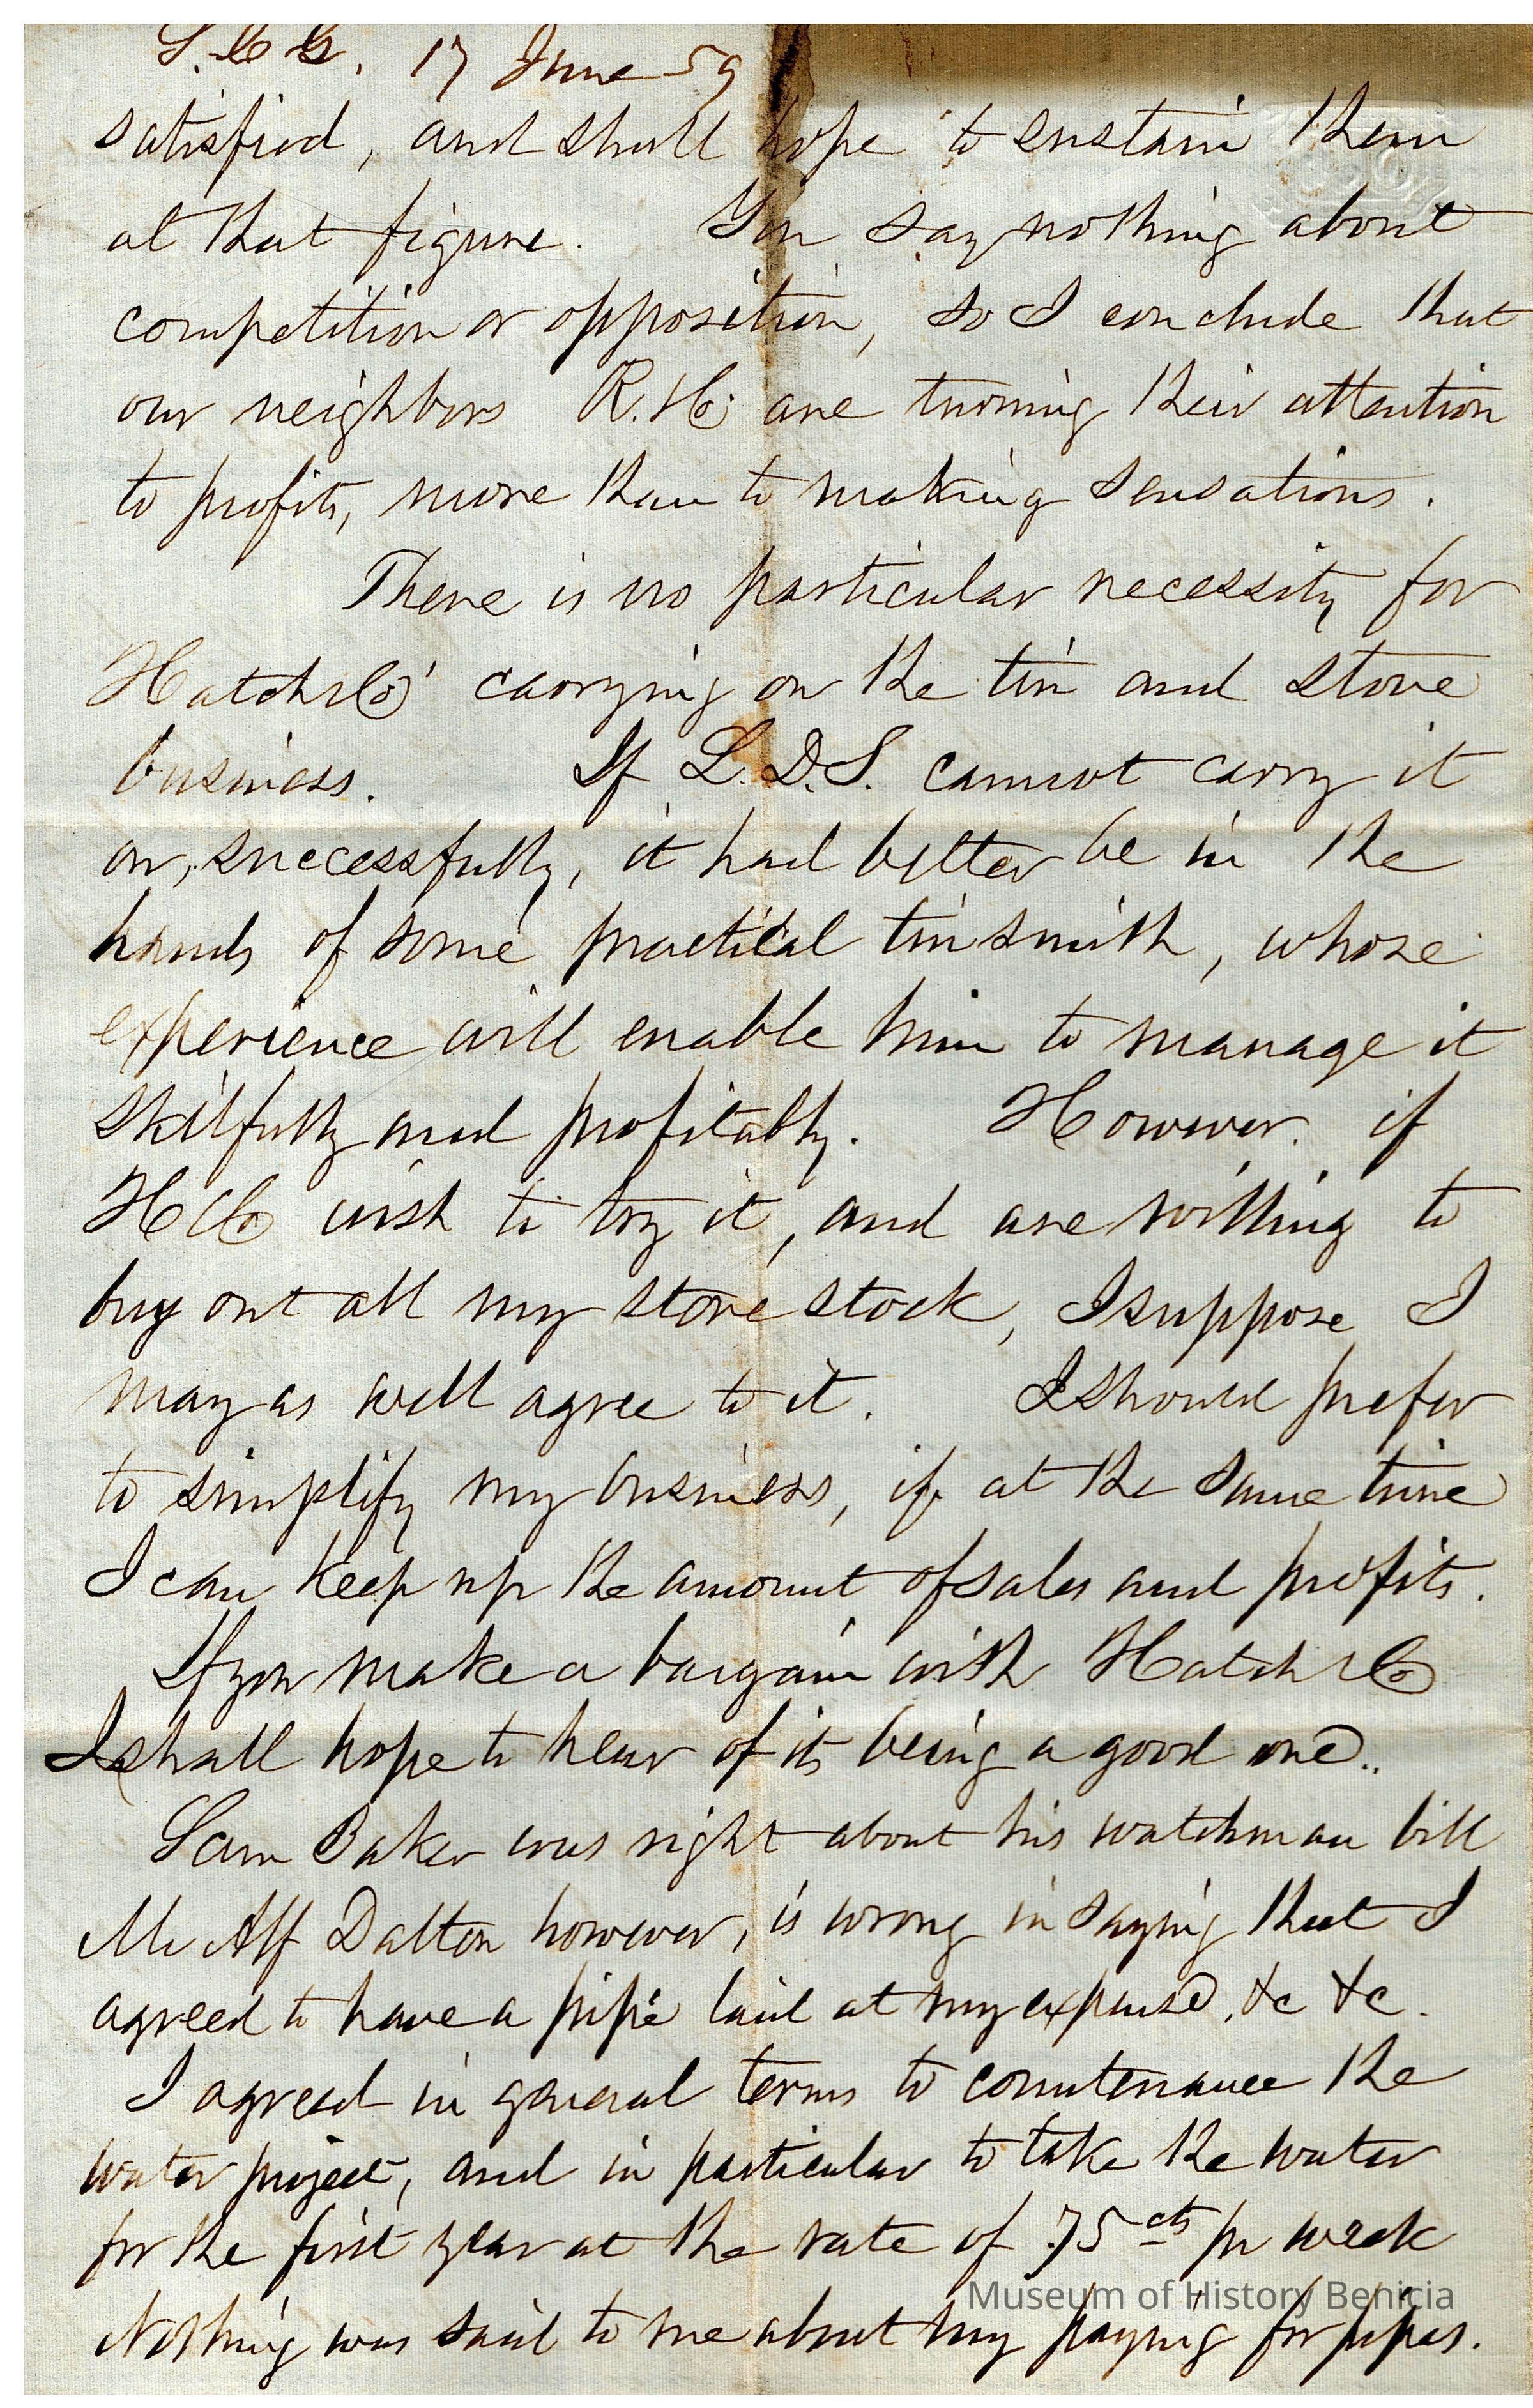 S.C.G. 17 June 59
satisfied, and shall hope to sustain them
at that figure. You say nothing about
competition or opposition, so I conclude that
our neighbors R. & Co. are turning their attention
to profits, more than to making sensations.
There is no particular necessity for
Hatch & Co' carrying on the tin and stove
business. If L.D.S. cannot carry it
on, successfully, it had better be in the
hands of some practical tinsmith, whose
experience will enable him to manage it
skilfully and profitably. However. if
H & Co wish to try it, and are willing to
buy out all my stove stock, I suppose I
may as well agree to it. I should prefer
to simplify my business, if at the same time
I can keep up the amount of sales and profits.
If you make a bargain with Hatch & Co
I shall hope to hear of its being a good one..
Sam Baker was right about his watchman bill
Mr Alf Dalton however, is wrong in saying that I
agreed to have a pipe laid at my expense, &c &c.
I agreed in general terms to countenance the
water project, and in particular to take the water
for the first year at the rate of .75 cts pr week
Nothing was said to me about my paying for pipes.
Museum of History Benicia